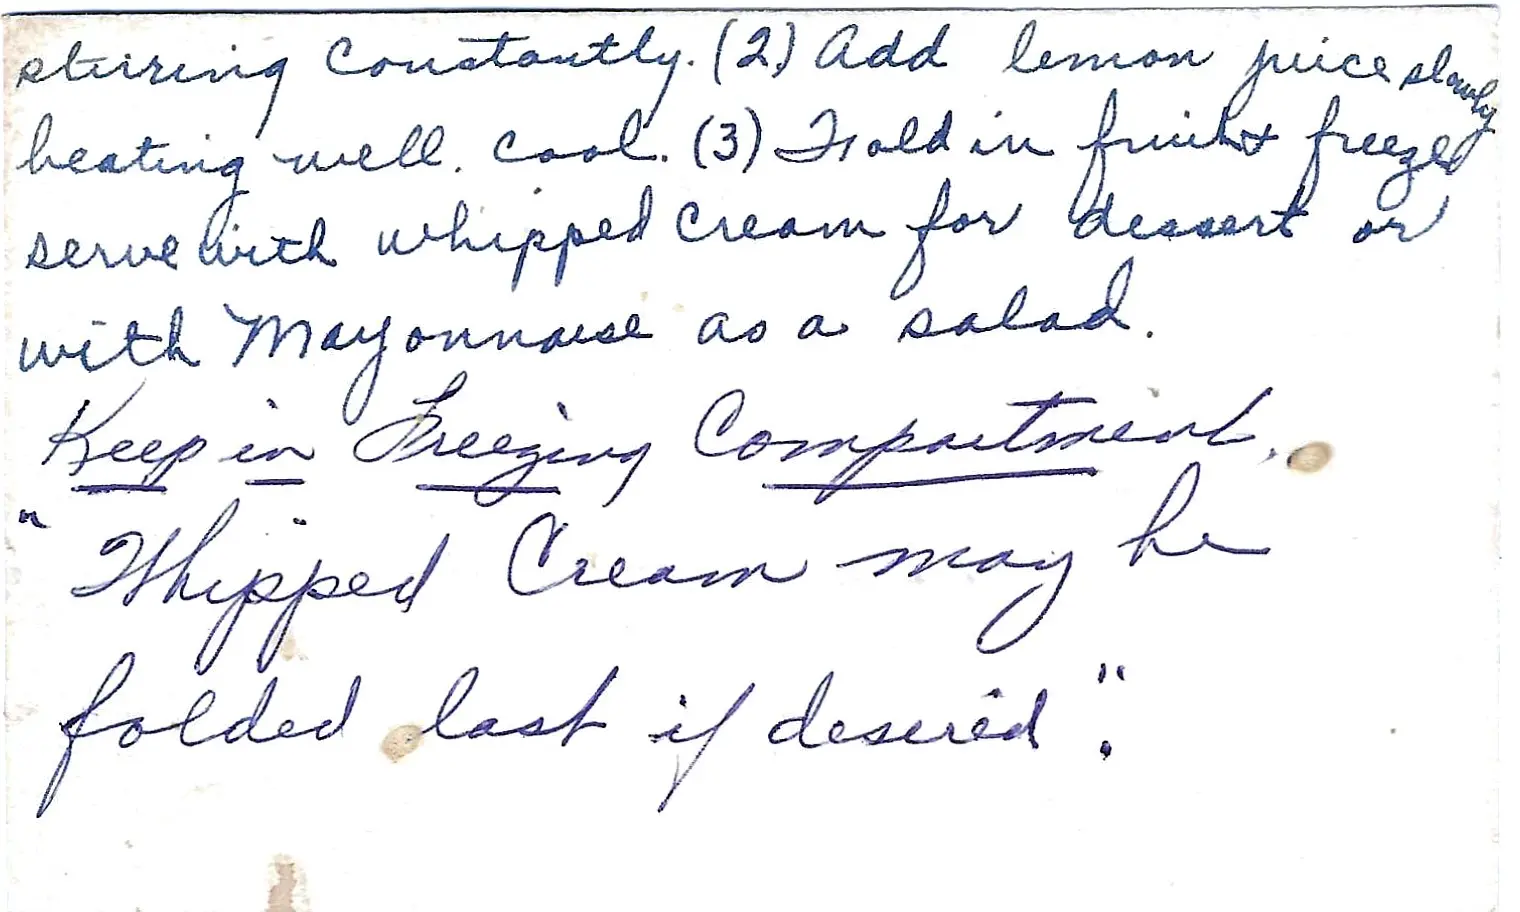 stirring constantly. (2) Add lemon juice slowly
beating well. cool. (3) Fold in fruit & freeze
serve with whipped cream for dessert or
with Mayonnaise as a salad.
Keep in Freezing Compartment.
"Whipped Cream may be
folded last if desired".